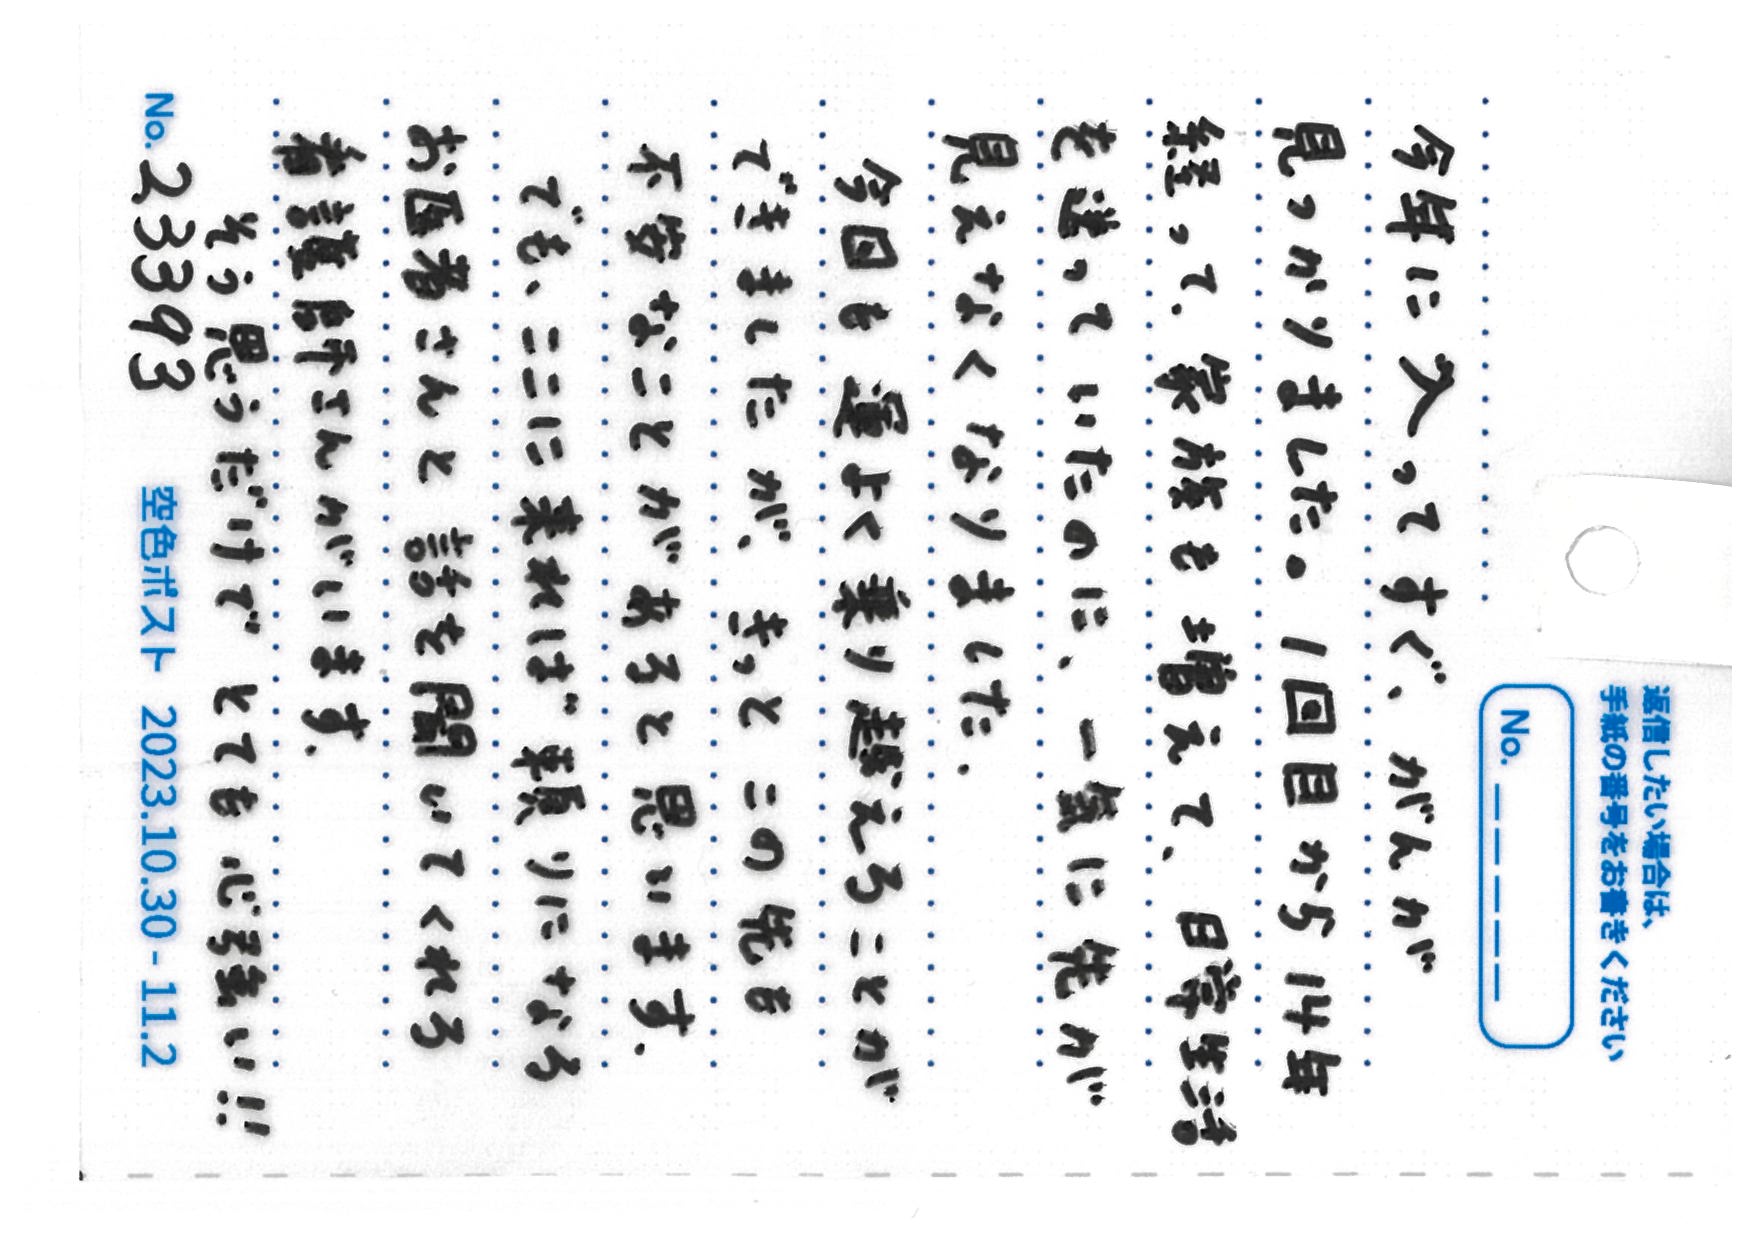 返信したい場合は、
手紙の番号をお書きください
No. _ _ _ _ _
今年に入ってすぐ、がんが
見つかりました。1回目から14年
経って、家族も増えて、日常生活
を送っていたのに、一気に先が
見えなくなりました.
今回も運よく乗り越えることが
できましたが、きっとこの先も
不安なことがあると思います.
でも、ここに来れば頼りになる
お医者さんと話を聞いてくれる
看護師さんがいます.
そう思うだけでとても心強い!!
No. 23393 空色ポスト 2023.10.30 - 11.2